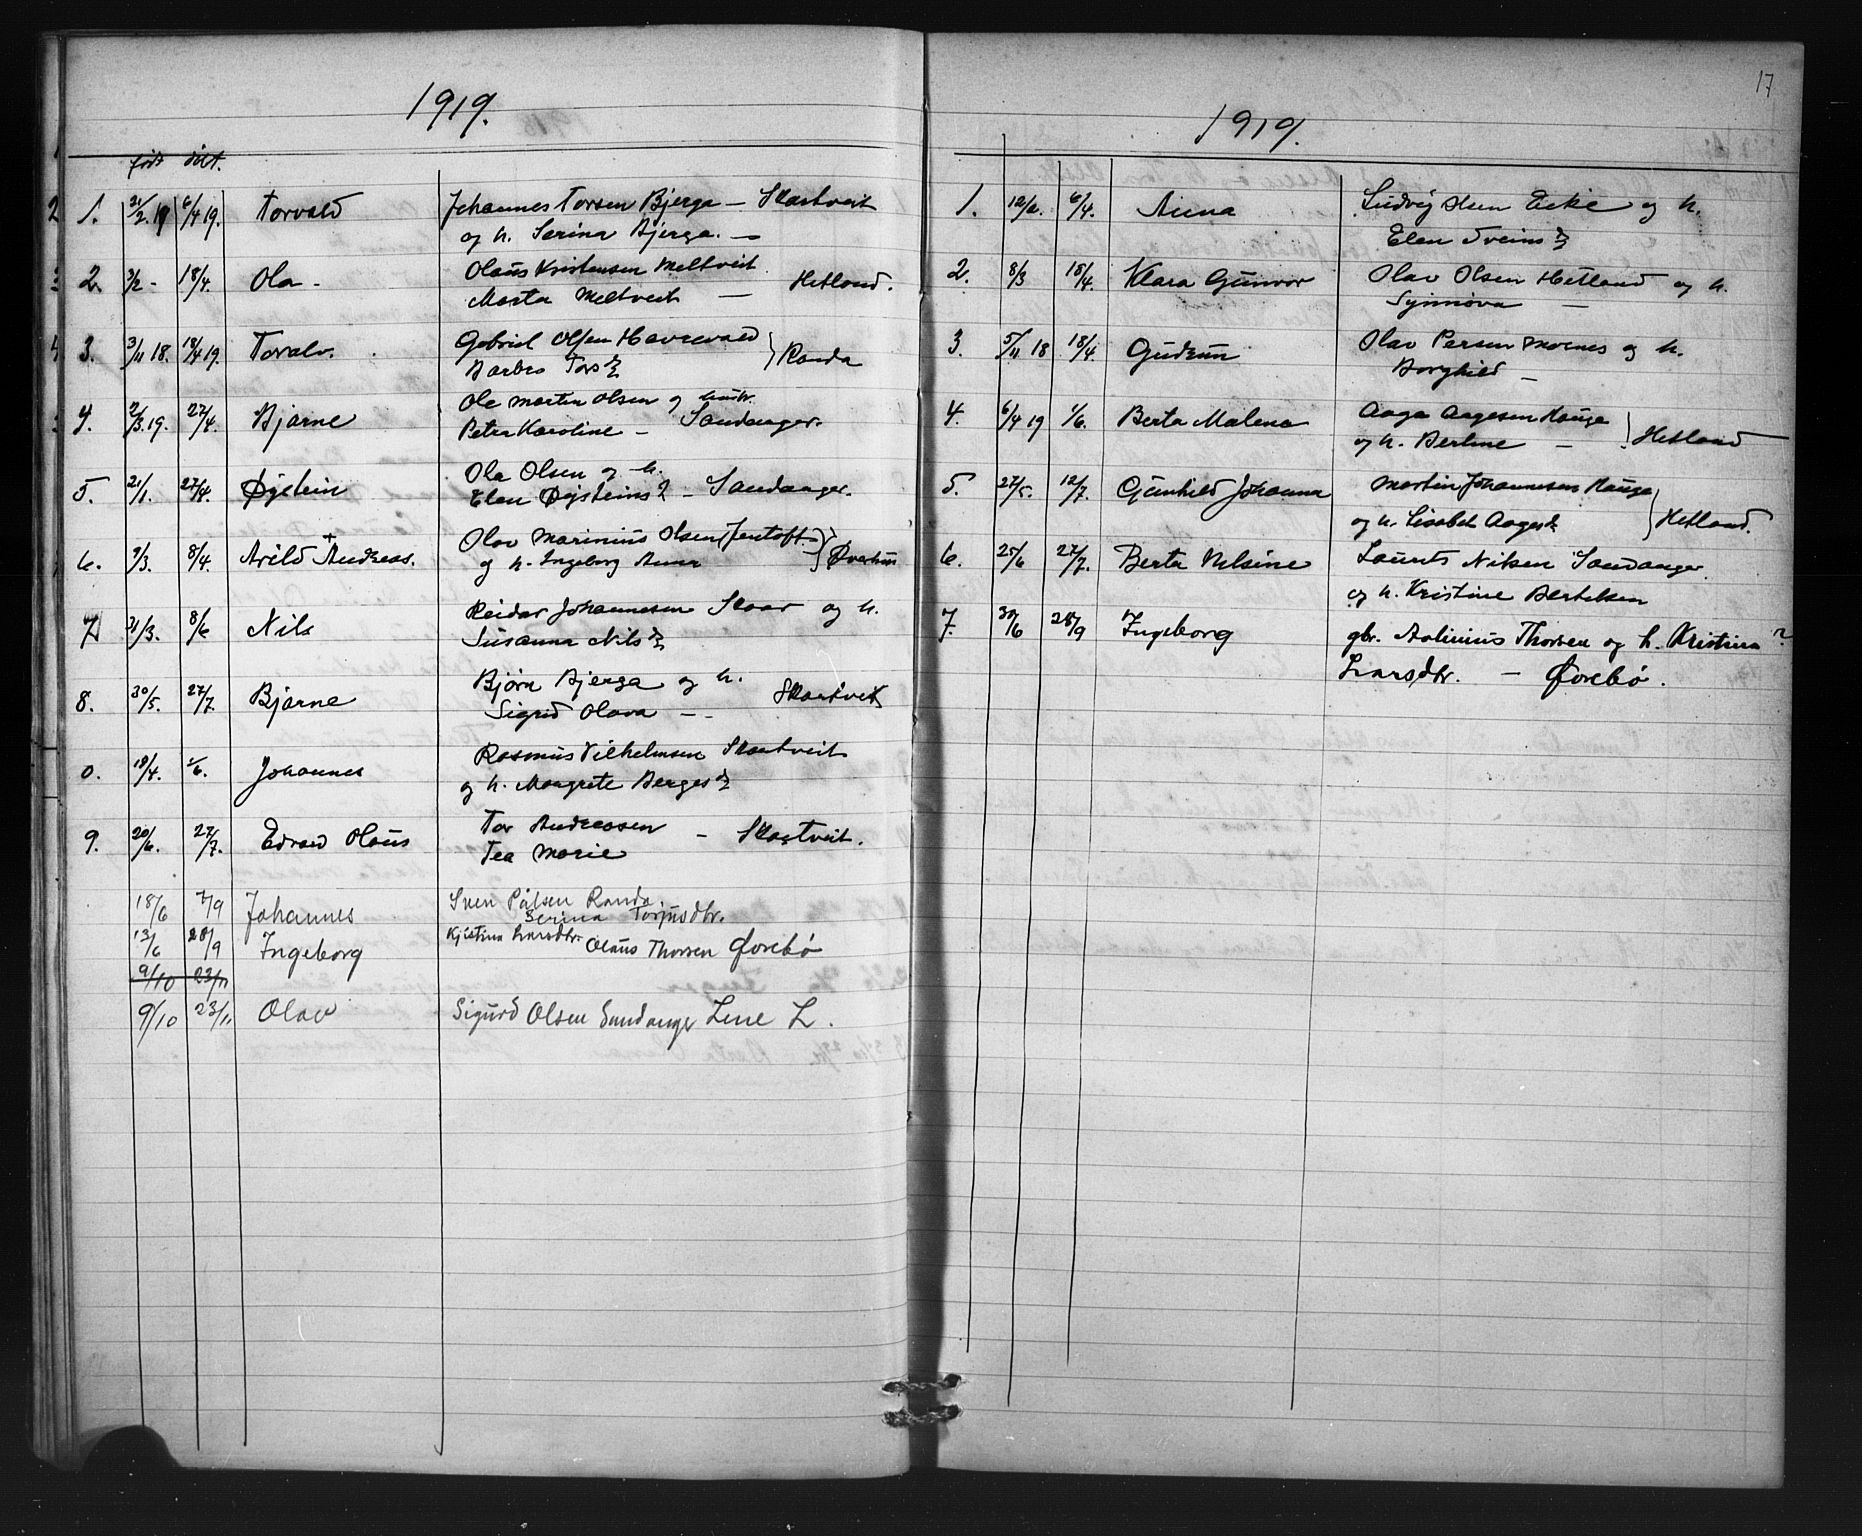 1919.
født døbt.
1. 21/2.19 6/4 19. Torvald Johannes Torsen Bjerga — Skartveit
og h. Serina Bjerga. —
2. 3/2 - 18/4. Ola - Olaus Kristensen Meltveit
Marta Meltveit — Hetland.
3. 3/11 18. 18/4 19. Toralv. Gabriel Olsen Havrevold
Barbro Torsd. } Randa
4. 2/3.19. 27/4. Bjarne Ole Martin Olsen og hustr.
Petra Karoline — Sandanger.
5. 21/1. 27/4. Øystein Ola Olsen og h.
Elen Øysteinsd. — Sandanger.
6. 9/3. 8/4. Arild Andreas. Olav Marinius Olsen (Jentoft)
og h. Ingeborg Anna }
7. 21/3. 8/6 Nils Reidar Johannesen Skaar og h.
Susanna Nilsd.
8. 30/5. 27/7. Bjarne Bjørn Bjerga og h.
Sigrid Olava — Skartveit
0. 18/4. 1/6. Johannes Rasmus Vilhelmsen Skartveit
og h. Margrete Bergesd.
9. 20/6. 27/7. Edvard Olaus Tor Andreassen
Tea Marie — Skartveit.
18/6 7/9 Johannes Sven Pålsen Randa.
Serina Torjusdtr.
13/6 28/9 Ingeborg Kjistina Larsdtr. Olaus Thorsen Øvrebø
9/10 23/11
9/10 23/11 Olav Sigurd Olsen Sandanger Line L.
17
1919.
1. 12/2. 6/4. Anna Ludvig Olsen Eike og h.
Elen Sveinsd.
2. 8/3 18/4. Klara Gunvor Olav Olsen Hetland og h.
Synnøva —
3. 5/11 18 18/4. Gudrun Olav Persen Moenes og h.
Borghild —
4. 6/4 19 1/6. Berta Malena Aaga Aagesen Hauge
og h. Berline — } Hetland
5. 27/5. 12/7. Gunhild Johanna Martin Johannesen Hauge
og h. Lisabet Aagesd. } Hetland.
6. 25/6 27/7. Berta Nilsine Laurits Nilsen Sandanger
og h. Kristine Bertelsen
7. 30/6 28/9 Ingeborg gbr. Aolinius Thorsen og h. Kristina ?
Larsdtr. — Øvrebø.